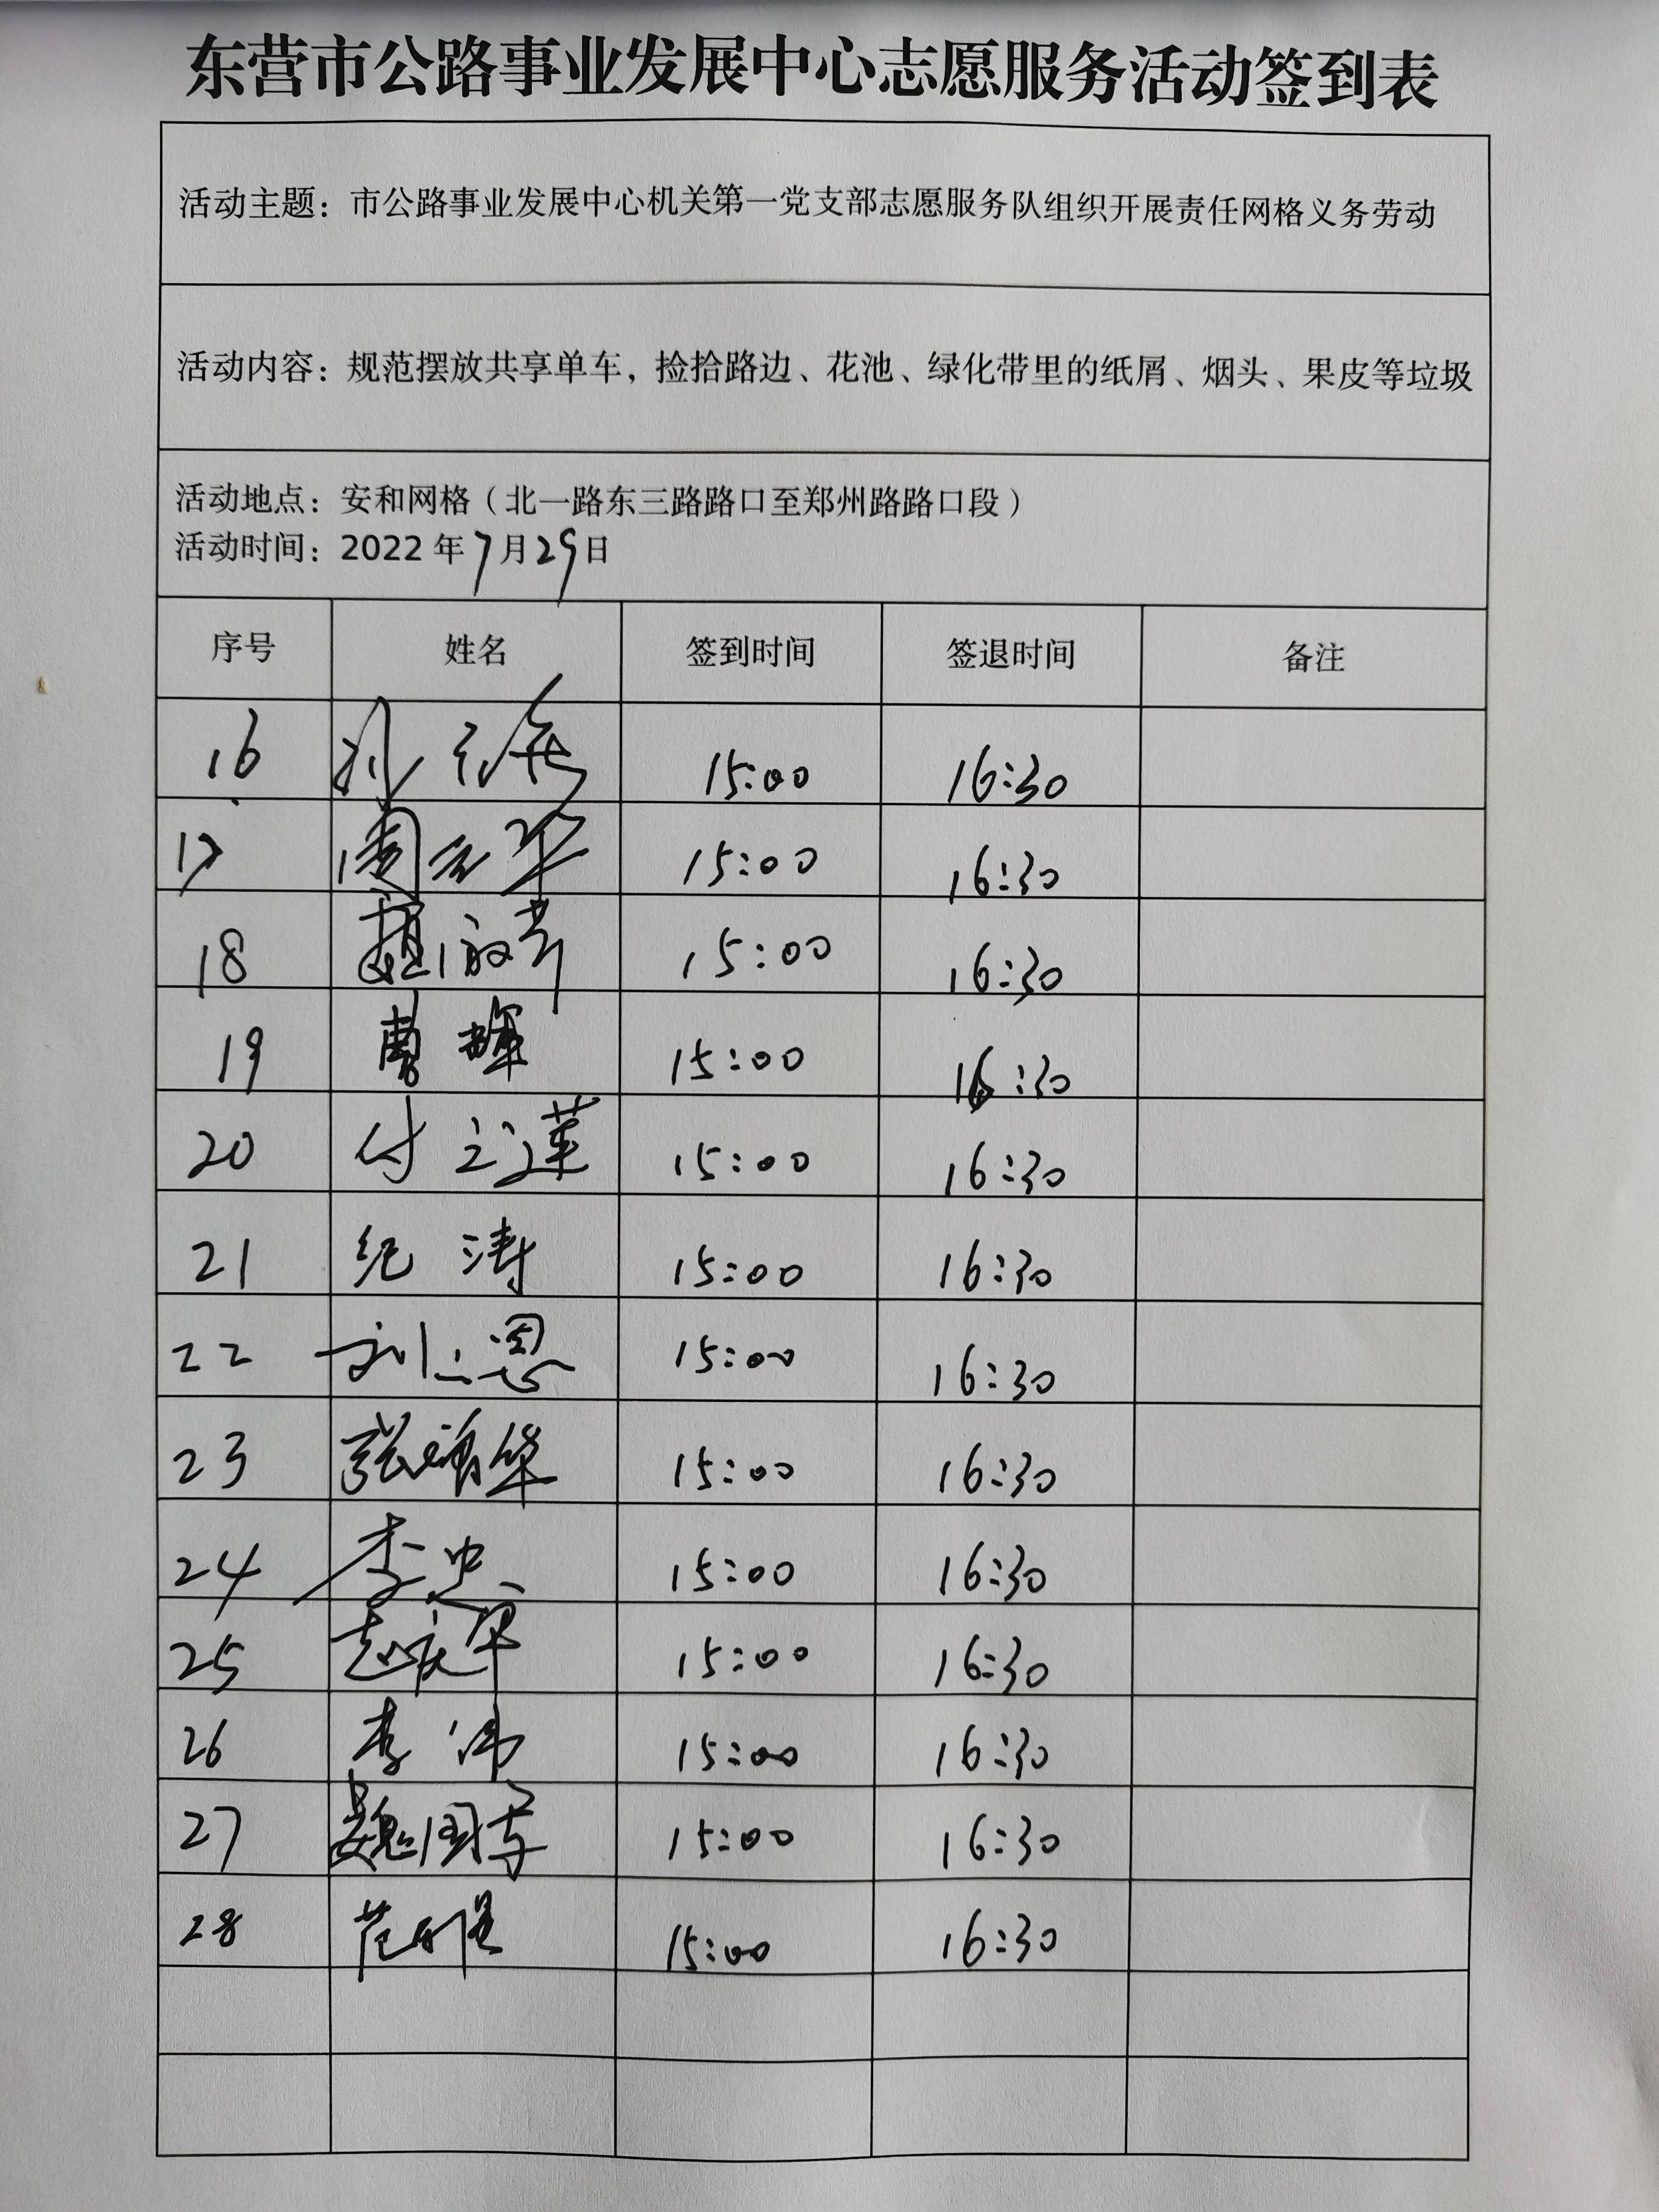 东营市公路事业发展中心志愿服务活动签到表
活动主题：市公路事业发展中心机关第一党支部志愿服务队组织开展责任网格义务劳动
活动内容：规范摆放共享单车，捡拾路边、花池、绿化带里的纸屑、烟头、果皮等垃圾
活动地点：安和网格（北一路东三路路口至郑州路路口段）
活动时间：2022年7月29日
序号 姓名 签到时间 签退时间 备注
16 15:00 16:30
17 15:00 16:30
18 15:00 16:30
19 曹辉 15:00 16:30
20 付立莲 15:00 16:30
21 纪涛 15:00 16:30
22 15:00 16:30
23 15:00 16:30
24 李忠 15:00 16:30
25 赵庆军 15:00 16:30
26 李伟 15:00 16:30
27 15:00 16:30
28 15:00 16:30